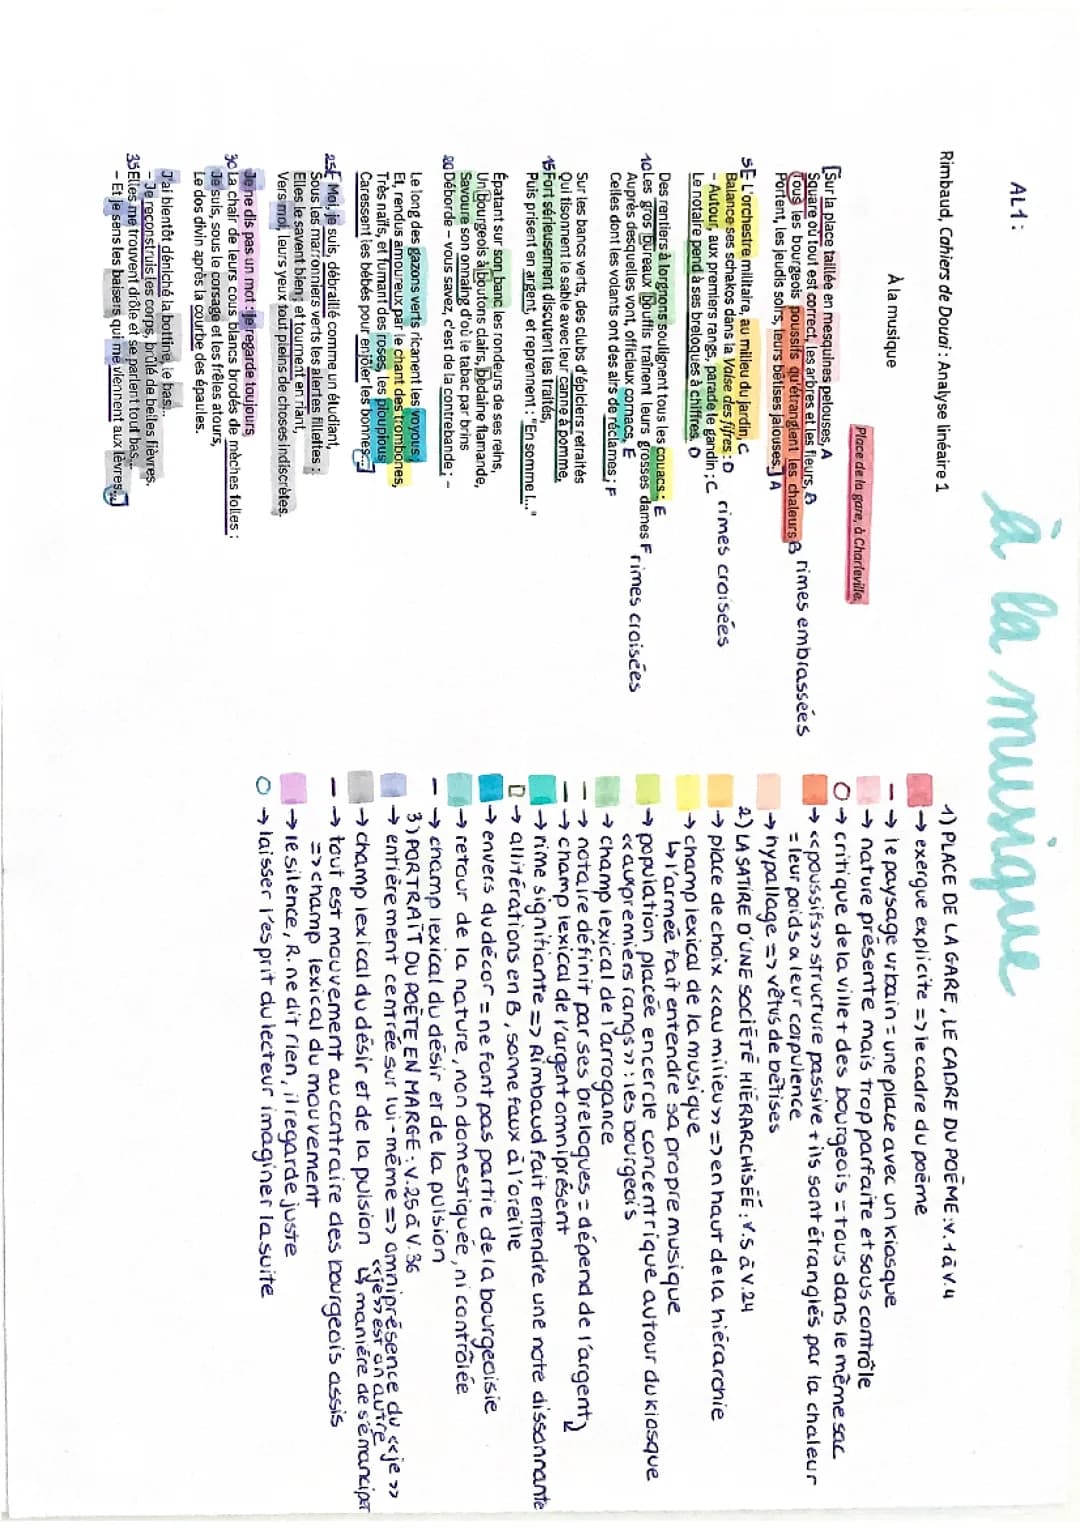 à la musique
AL1 :
Rimbaud, Cahiers de Douai : Analyse linéaire 1
À la musique
Place de la gare, à Charleville.
[Sur la place taillée en mesquines pelouses, A
Square où tout est correct, les arbres et les fleurs, B
Tous les bourgeois poussifs qu'étranglent les chaleurs B rimes embrassées
Portent, les jeudis soirs, leurs bêtises jalouses.] A
5[- L'orchestre militaire, au milieu du jardin, C
Balance ses schakos dans la Valse des fifres : D
- Autour, aux premiers rangs, parade le gandin ; C rimes croisées
Le notaire pend à ses breloques à chiffres. D
Des rentiers à lorgnons soulignent tous les couacs : E
10 Les gros bureaux bouffis traînent leurs grosses dames F
Auprès desquelles vont, officieux cornacs, E rimes croisées
Celles dont les volants ont des airs de réclames ; F
Sur les bancs verts, des clubs d'épiciers retraités
Qui tisonnent le sable avec leur canne à pomme,
15 Fort sérieusement discutent les traités,
Puis prisent en argent, et reprennent : "En somme !..."
Épatant sur son banc les rondeurs de ses reins,
Un bourgeois à boutons clairs, bedaine flamande,
Savoure son onnaing d'où le tabac par brins
20 Déborde – vous savez, c'est de la contrebande ; –
Le long des gazons verts ricanent les voyous ;
Et, rendus amoureux par le chant des trombones,
Très naïfs, et fumant des roses, les pioupious
Caressent les bébés pour enjôler les bonnes...]
25[ Moi, je suis, débraillé comme un étudiant,
Sous les marronniers verts les alertes fillettes :
Elles le savent bien ; et tournent en riant,
Vers moi, leurs yeux tout pleins de choses indiscrètes.
Je ne dis pas un mot : je regarde toujours
30 La chair de leurs cous blancs brodés de mèches folles :
Je suis, sous le corsage et les frêles atours,
Le dos divin après la courbe des épaules.
J'ai bientôt déniché la bottine, le bas...
- Je reconstruis les corps, brûlé de belles fièvres.
35 Elles me trouvent drôle et se parlent tout bas...
- Et je sens les baisers qui me viennent aux lèvres...]
1) PLACE DE LA GARE, LE CADRE DU POÈME : V.1 à V.4
→ exergue explicite => le cadre du poème
- → le paysage urbain = une place avec un kiosque
→ nature présente mais trop parfaite et sous contrôle
O → critique de la ville + des bourgeois = tous dans le même sac
→ <<poussifs>> structure passive + ils sont étranglés par la chaleur
= leur poids a leur corpulence
→ hypallage => vêtus de bêtises
2) LA SATIRE D'UNE SOCIÉTÉ HIÉRARCHISÉE : V.5 à V.24
→ place de choix <<au milieu>> => en haut de la hiérarchie
→ champ lexical de la musique
↳ l'armée fait entendre sa propre musique
→ population placée en cercle concentrique autour du kiosque
<<aux premiers rangs>> : les bourgeois
→ champ lexical de l'arrogance
- → notaire définit par ses breloques = dépend de l'argent
- → champ lexical de l'argent omniprésent
→ rime signifiante => Rimbaud fait entendre une note dissonnante
□ → allitérations en B, sonne faux à l'oreille
→ envers du décor = ne font pas partie de la bourgeoisie
→ retour de la nature, non domestiquée, ni contrôlée
- → champ lexical du désir et de la pulsion
3) PORTRAIT DU POÈTE EN MARGE : V.25 à V.36
→ entièrement centrée sur lui-même => omniprésence du <<je>>
<<je>> est un autre
→ champ lexical du désir et de la pulsion ↳ manière de s'émanciper
- → tout est mouvement au contraire des bourgeois assis
=> champ lexical du mouvement
→ le silence, R. ne dit rien, il regarde juste
O → laisser l'esprit du lecteur imaginer la suite